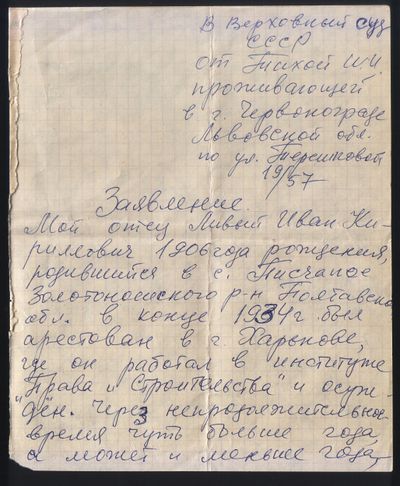 В Верховный суд
СССР
от Тихой И.И.
проживающей
в г. Червонограде
Львовской обл.
по ул. Терешковой
19/57
Заявление.
Мой отец Ливый Иван Ки-
риллович 1906 года рождения,
родившийся в с. Песчаное
Золотоношского р-н Полтавско
обл. в конце 1934 г был
арестован в г. Харькове,
где он работал в институте
"Права и Строительства" и осуж-
дён. Через непродолжительное
время чуть больше года,
а может и меньше года,